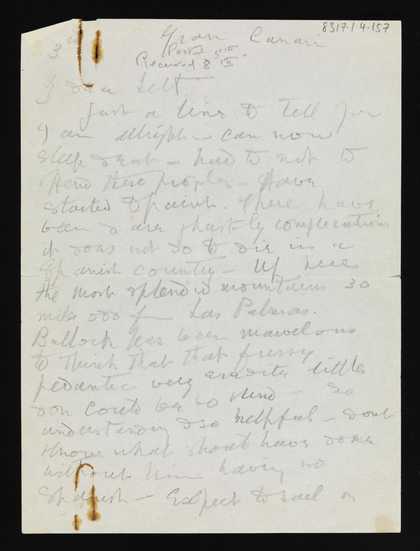 8317.1.4.157
3rd Gran Canari
Posted
Received 8
Dear
Just a line to tell you
I am allright - can now
sleep & eat - had to not to
offend these people - Have
started to paint. There have
been & are ghastly complications
it does not do to die in a
Spanish country - Up here
the most splendid mountains 30
miles odd from Las Palmas.
Bullock has been marvelous
to think that that fussy
pedantic very erudite little
don could be so kind - so
understanding & so helpful - dont
know what should have done
without him having no
Spanish - Expect to sail on